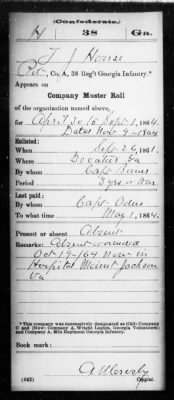 (Confederate.)
H 38 Ga.
T J House
Pvt, Co. A, 38 Reg't Georgia Infantry.*
Appears on
Company Muster Roll
of the organization named above,
for April 30 to Sept 1, 1864.
Dated Nov 9 - 1864
Enlisted:
When Sept 26, 1861.
Where Decatur Ga
By whom Capt
Period 3 yrs or War
Last paid:
By whom Capt
To what time May 1, 1864.
Present or absent Absent
Remarks: Absent wounded
Oct 19-/64 Now in
Hospital Mount Jackson
Va
*This company was successively designated as (Old) Company
C and (New) Company A, Wright Legion, Georgia Volunteers;
and Company A, 38th Regiment Georgia Infantry.
Book mark:
(642)
Copyist.